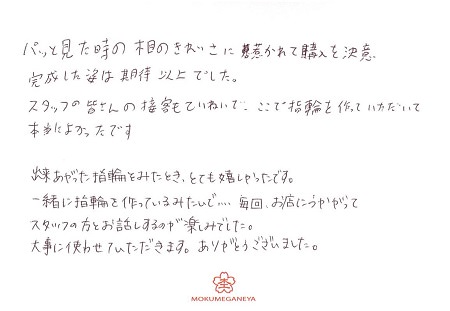 パッと見た時の相のきれいさに惹かれて購入を決意
完成した姿は期待以上でした。
スタッフの皆さんの接客もていねいで、ここで指輪を作っていただいて
本当によかったです
出来あがった指輪をみたとき、とても嬉しかったです。
一緒に指輪を作っているみたいで… 毎回、お店にうかがって
スタッフの方とお話しするのが楽しみでした。
大事に使わせていただきます。ありがとうございました。
MOKUMEGANEYA